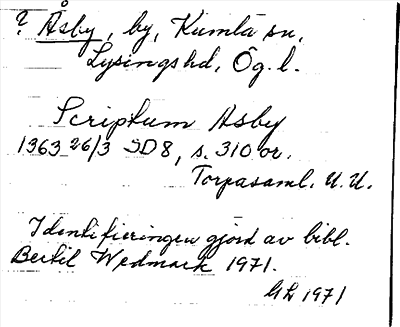 ? Åsby, by, Kumla sn,
Lysings hd, Ög. l.
Scriptum Asby
1363 26/3 SD8, s. 310 or.
Torpasaml. U.U.
Identifieringen gjord av bibl.
Bertil Wedmark 1971.
GL 1971